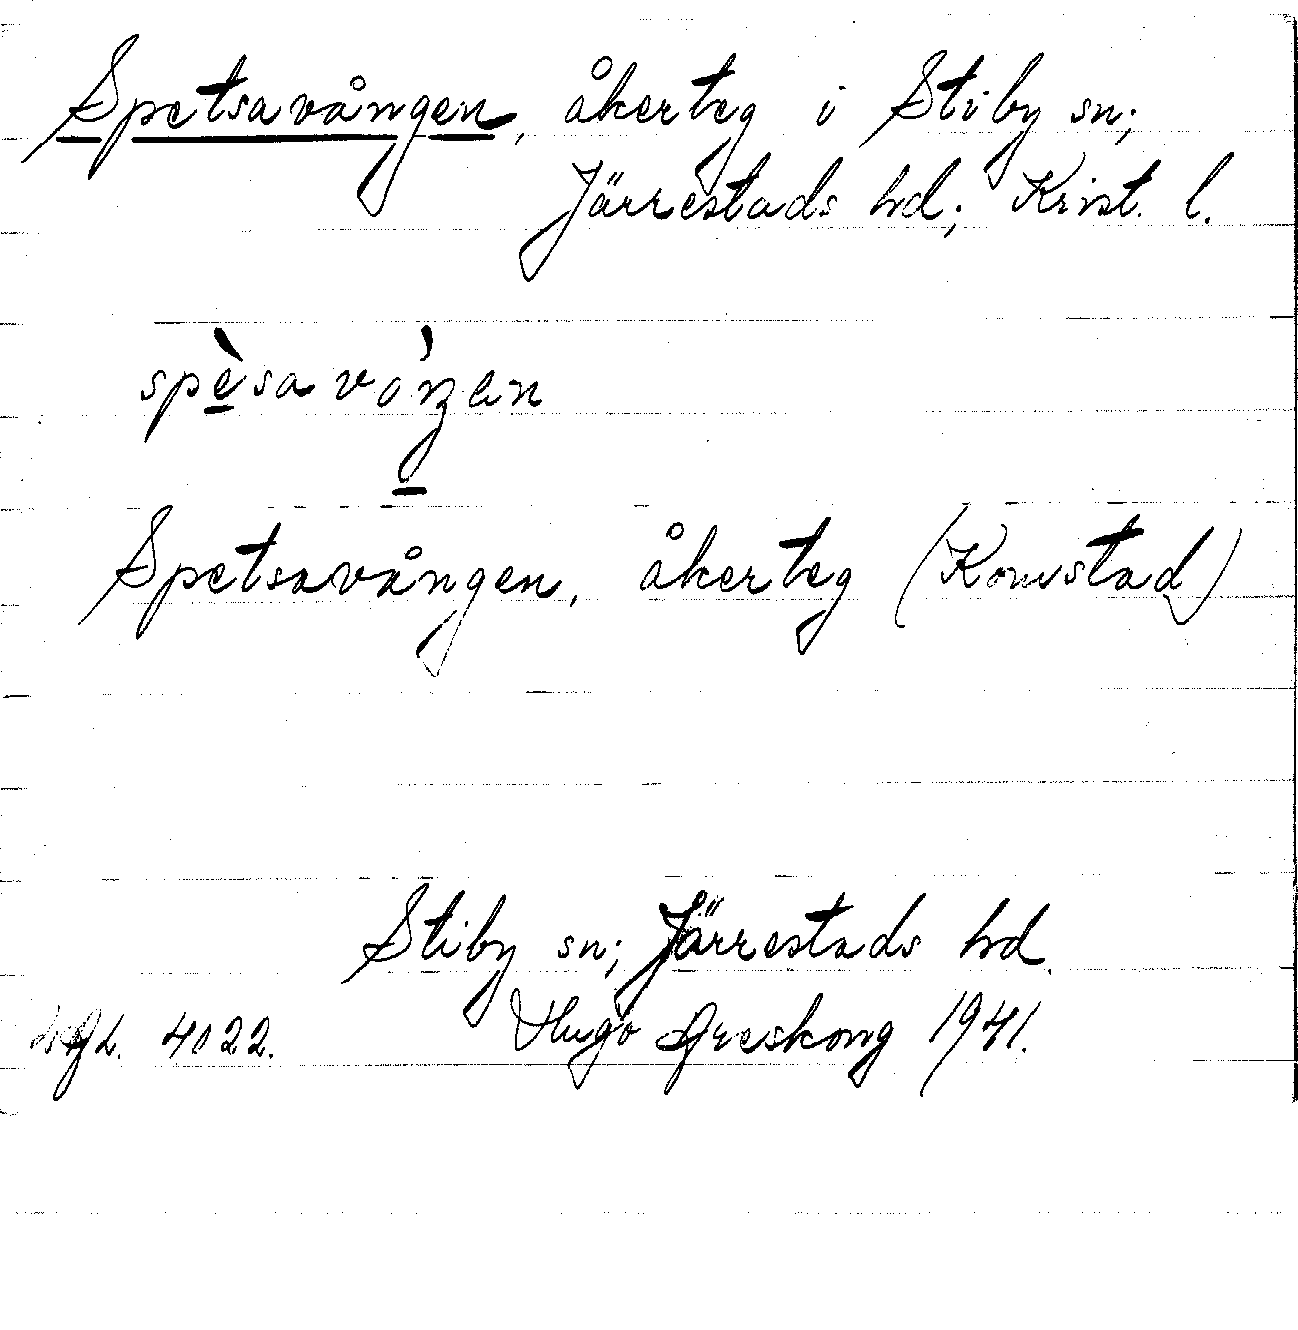 Spetsavången, åkerteg i Stiby sn;
Järrestads hd; Krist. l.
spèsa vòŋen
Spetsavången, åkerteg (Komstad)
Stiby sn; Järrestads hd.
4022. Hugo Areskoug 1941.